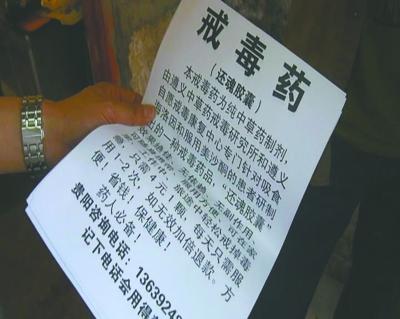 戒毒药
（还魂胶囊）
本戒毒药为纯中草药制剂，
由遵义中草药戒毒研究所和遵义
自愿戒毒康复中心专门针对吸食
海洛因和服用美沙酮的患者研制
成的一种戒毒药品，“还魂胶囊”
副作用
轻松戒掉毒
只需 元 啊，每天只需服
用1-2次，如无效加倍退款。方
便！省钱！保健康！
药人必备！
贵阳咨询电话：1363924
记下电话会用得